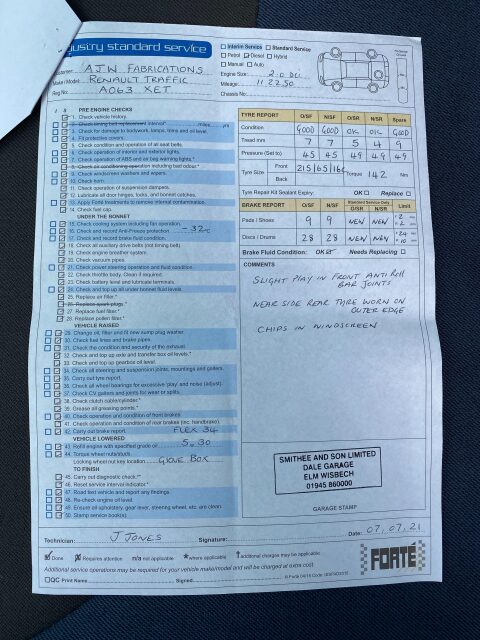 industry standard service
Interim Service Standard Service
Customer: AJW FABRICATIONS
Petrol Diesel Hybrid
Make / Model: RENAULT TRAFFIC
Manual Auto
Reg No: AO63 XET
Engine Size: 2.0 DCI
Mileage: 112250
Chassis No:
PRE ENGINE CHECKS
1. Check vehicle history.
2. Check timing belt replacement interval* miles yrs
3. Check for damage to bodywork, lamps, trims and oil level
4. Fit protective covers.
5. Check condition and operation of all seat belts.
6. Check operation of interior and exterior lights.
7. Check operation of ABS and air bag warning lights.*
8. Check air conditioning operation including bad odour.*
9. Check windscreen wipers and washers.
10. Check horn.
11. Check operation of suspension dampers.
12. Lubricate all door hinges, locks, and bonnet catches.
13. Apply Forté Treatments to remove internal contamination.
14. Check fuel cap.
UNDER THE BONNET
15. Check cooling system including fan operation.
16. Check and record Anti-Freeze protection -32c
17. Check and record brake fluid condition.
18. Check all auxiliary drive belts (not timing belt).
19. Check engine breather system.
20. Check vacuum pipes.
21. Check power steering operation and fluid condition.
22. Check throttle body. Clean if required.
23. Check battery level and lubricate terminals.
24. Check and top up all under bonnet fluid levels.
25. Replace air filter.*
26. Replace spark plugs.*
27. Replace fuel filter.*
28. Replace pollen filter.*
VEHICLE RAISED
29. Change oil, filter and fit new sump plug washer.
30. Check fuel lines and brake pipes.
31. Check the condition and security of the exhaust.
32. Check and top up axle and transfer box oil levels.*
33. Check and top up gearbox oil level.
34. Check all steering and suspension joints, mountings and gaiters.
35. Carry out tyre report.
36. Check all wheel bearings for excessive 'play' and noise (adjust).
37. Check CV gaiters and joints for wear or splits.
38. Check clutch cable/cylinder.*
39. Grease all greasing points.*
40. Check operation and condition of front brakes.
41. Check operation and condition of rear brakes (inc. handbrake).
42. Carry out brake report. FLEX 34
VEHICLE LOWERED
43. Refill engine with specified grade oil 5.30
44. Torque wheel nuts/studs.
Locking wheel nut key location GLOVE BOX
TO FINISH
45. Carry out diagnostic check.**
46. Reset service indicator.*
47. Road test vehicle and report any findings.
48. Re-check engine oil level.
49. Ensure all upholstery, gear lever, steering wheel, etc. are clean.
50. Stamp service book(s).
TYRE REPORT O/SF N/SF O/SR N/SR Spare
Condition GOOD GOOD OK OK GOOD
Tread mm 7 7 5 4 9
Pressure (Set to) 45 45 49 49 49
Tyre Size Front 215/65/16C Torque 142 Nm
Back
Tyre Repair Kit Sealant Expiry: OK Replace
BRAKE REPORT O/SF N/SF Standard Service Only O/SR N/SR Limit
Pads / Shoes 9 9 NEW NEW
Discs / Drums 28 28 NEW NEW
Brake Fluid Condition: OK Needs Replacing
COMMENTS
SLIGHT PLAY IN FRONT ANTI ROLL
BAR JOINTS
NEAR SIDE REAR TYRE WORN ON
OUTER EDGE
CHIPS IN WINDSCREEN
SMITHEE AND SON LIMITED
DALE GARAGE
ELM WISBECH
01945 860000
GARAGE STAMP
Technician: J JONES Signature: Date: 07.07.21
Done Requires attention n/a not applicable * where applicable † additional charges may be applicable
Additional service operations may be required for your vehicle make/model and will be charged at extra cost
QC Print Name Signed
FORTÉ